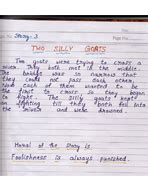 Story - 3
TWO SILLY GOATS
Two goats were trying to cross a
They both met in the middle.
The bridge was so narrow that
they could not pass each other,
each of them wanted to be
to cross. So they began
to fight. The silly goats kept
on fighting till they both fell into
the river and were drowned.
Moral of the story is
Foolishness is always punished.